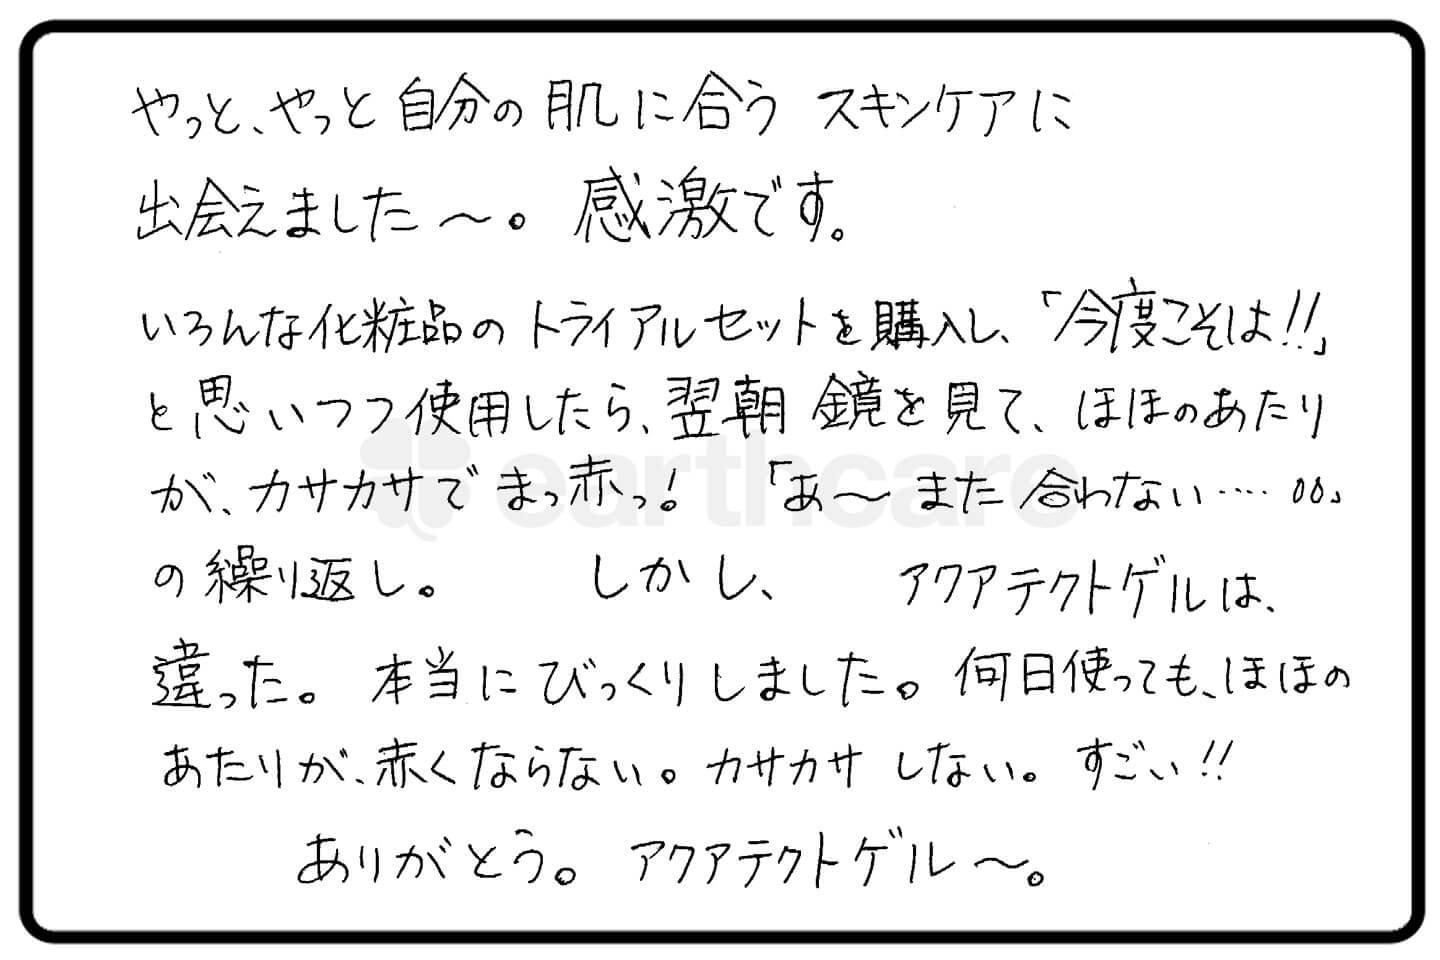 やっと、やっと自分の肌に合う スキンケアに
出会えました〜。 感激です。
いろんな化粧品のトライアルセットを購入し、「今度こそは!!」
と思いつつ使用したら、翌朝 鏡を見て、ほほのあたり
が、カサカサでまっ赤っ! 「あ〜また合わない‥‥。。」
の繰り返し。 しかし、 アクアテクトゲルは、
違った。 本当にびっくりしました。何日使っても、ほほの
あたりが、赤くならない。カサカサしない。すごい!!
ありがとう。 アクアテクトゲル〜。
earthcare